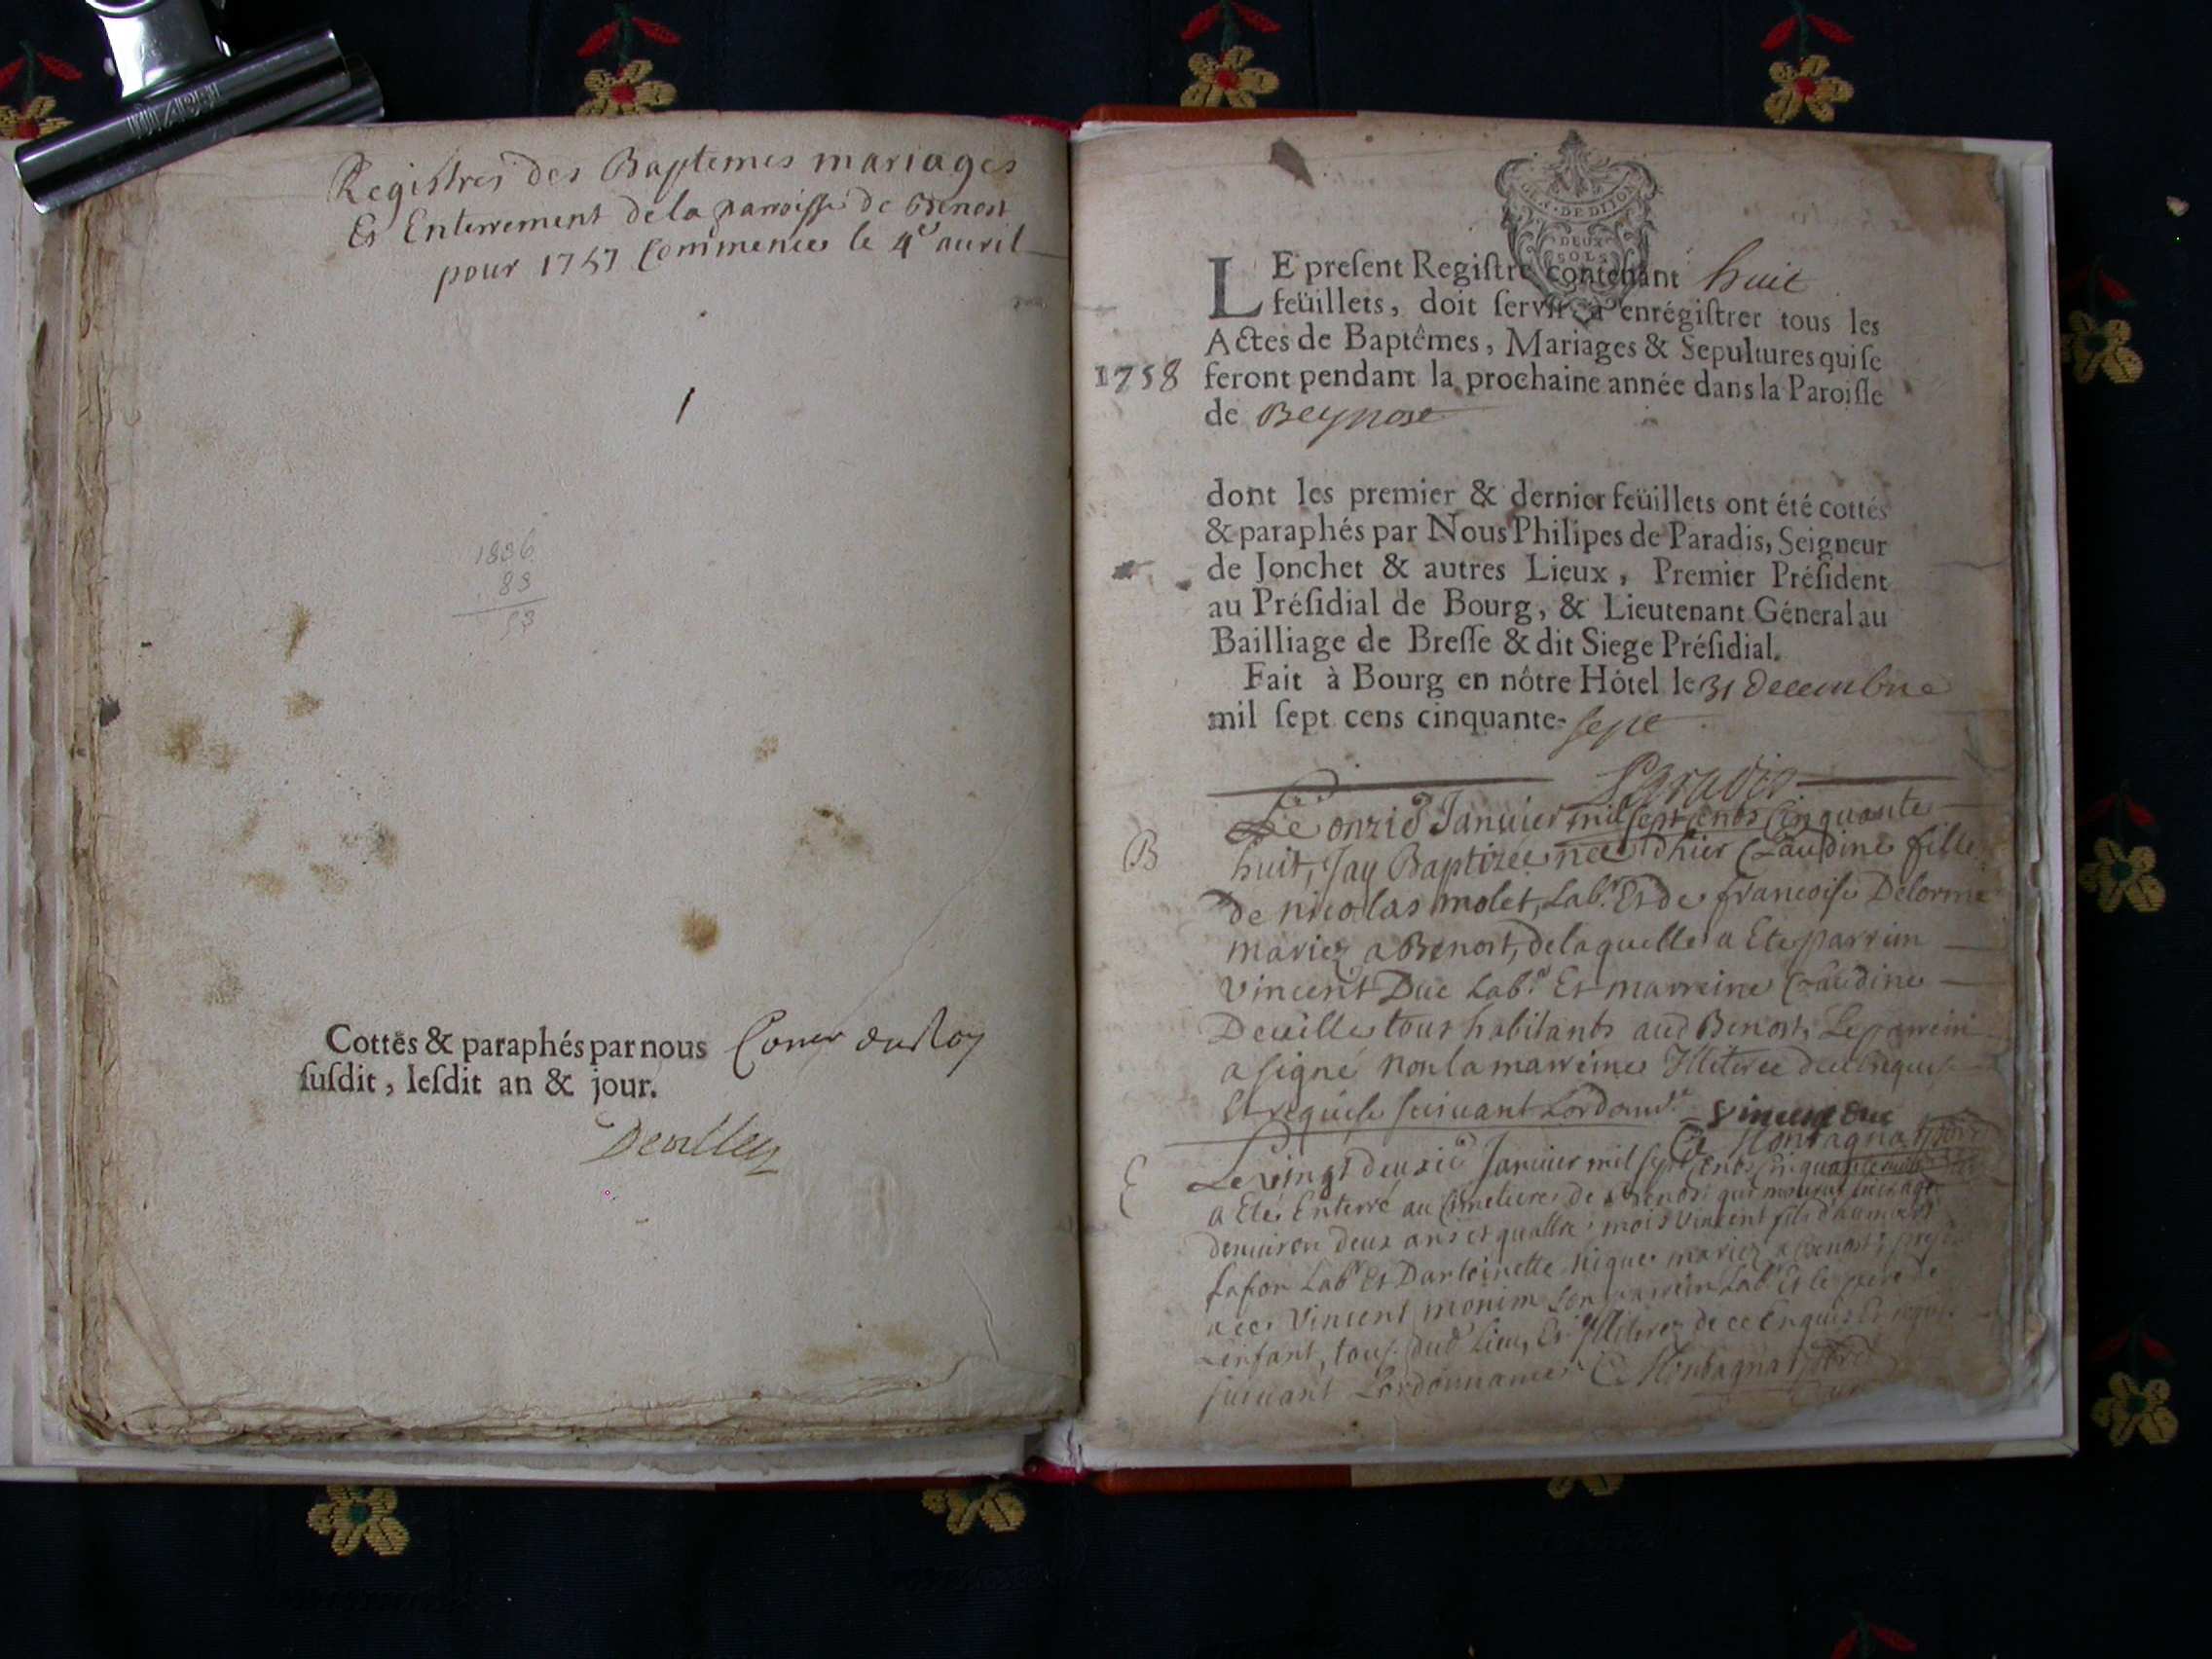 Registres des Baptemes mariages
Et Enterrement de la parroisse de Benost
pour 1757 Commencer le 4e auril
1
1836
83
53
Cottés & paraphés par nous Coner du Roy
susdit, lesdit an & jour.
GEN. DE DIJON
DEUX
SOLS
LE present Registre contenant huit
feüillets, doit servir à enrégistrer tous les
Actes de Baptêmes, Mariages & Sepultures qui se
1758 feront pendant la prochaine année dans la Paroisse
de Beynost
dont les premier & dernier feüillets ont été cottés
& paraphés par Nous Philipes de Paradis, Seigneur
de Jonchet & autres Lieux, Premier Président
au Présidial de Bourg, & Lieutenant Géneral au
Bailliage de Bresse & dit Siege Présidial.
Fait à Bourg en nôtre Hôtel le 31 Decembre
mil sept cens cinquante-sept
Paradis
Le onzie Januier mil sept cents Cinquante
B huit, Jay Baptizée née d'hier Claudine fille
de nicolas molet, Labr. Et de francoise Delorme
mariez a Benost, de laquelle a Ete parrin
Vincent Duc Labr. Et marreine Claudine
Deuille tous habitants aud Benost, Le parrein
a signé non la marreine Illiteree de ce Enquise
Et requise suiuant Lordonce Vincent Duc
C Montagnat
E Le vingt deuxie Januier mil sept cents Cinquante huit
a Eté Enterré au Cimetiere de Benost qui mourut hier agé
denuiron deux ans et quattre mois Vincent fils
Lafon Labr Et Dantoinette nique mariez a Benost;
auec Vincent monim son parrein Labr Et le pere de
Lenfant, tous dud Lieu, Et Illiterez de ce Enquis Et requis
suiuant Lordonnance C Montagnat